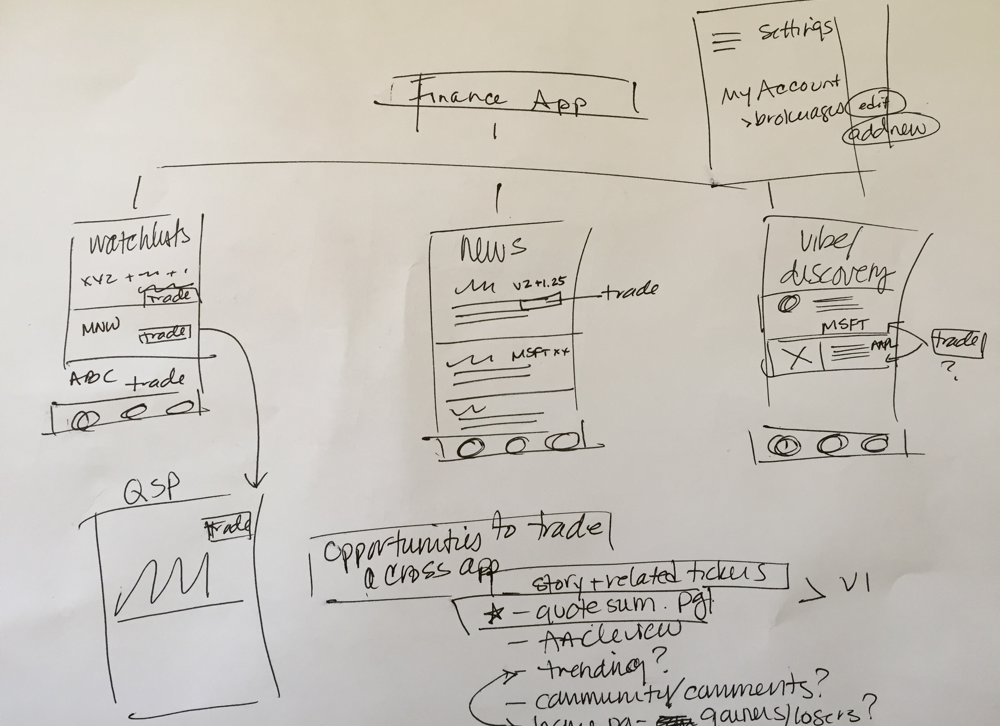 Settings
My Account
>brokerages edit
add new
Finance App
Watchlists
XYZ +
trade
MNW trade
ABC trade
News
V2+1.25
trade
MSFT ++
Vibe/
discovery
MSFT
AAPL
trade
?
QSP
trade
Opportunities to trade
across app
- story + related tickers
> V1
★ - quote sum. pg
- trending?
- community/comments?
gainers/losers?